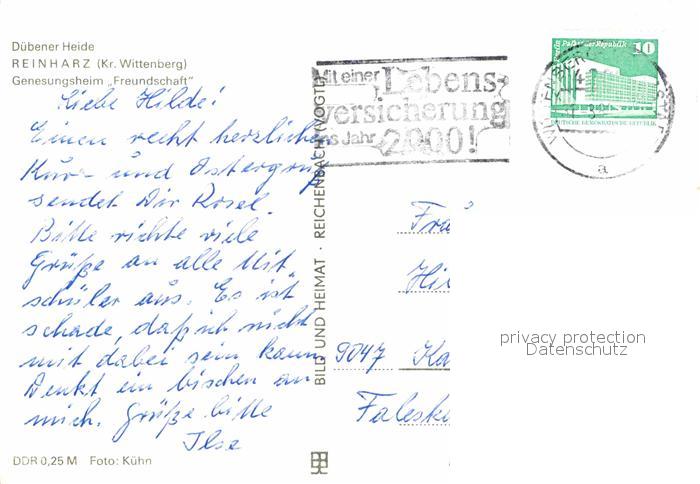 Dübener Heide
REINHARZ (Kr. Wittenberg)
Genesungsheim „Freundschaft"
Liebe Hilde!
Einen recht herzlichen
Kur- und Ostergruß
sendet Dir Rosel.
Bitte richte viele
Grüße an alle Mit-
schüler aus. Es ist
schade, daß ich nicht
mit dabei sein kann
Denkt ein bischen an
mich. Grüße bitte
Ilse
DDR 0,25 M Foto: Kühn
BILD UND HEIMAT · REICHENBACH (VOGTL
Mit einer Lebens-
versicherung
ins Jahr 2000!
10
DEUTSCHE DEMOKRATISCHE REPUBLIK
a
Fra
Hil
9047 Ka
privacy protection
Datenschutz